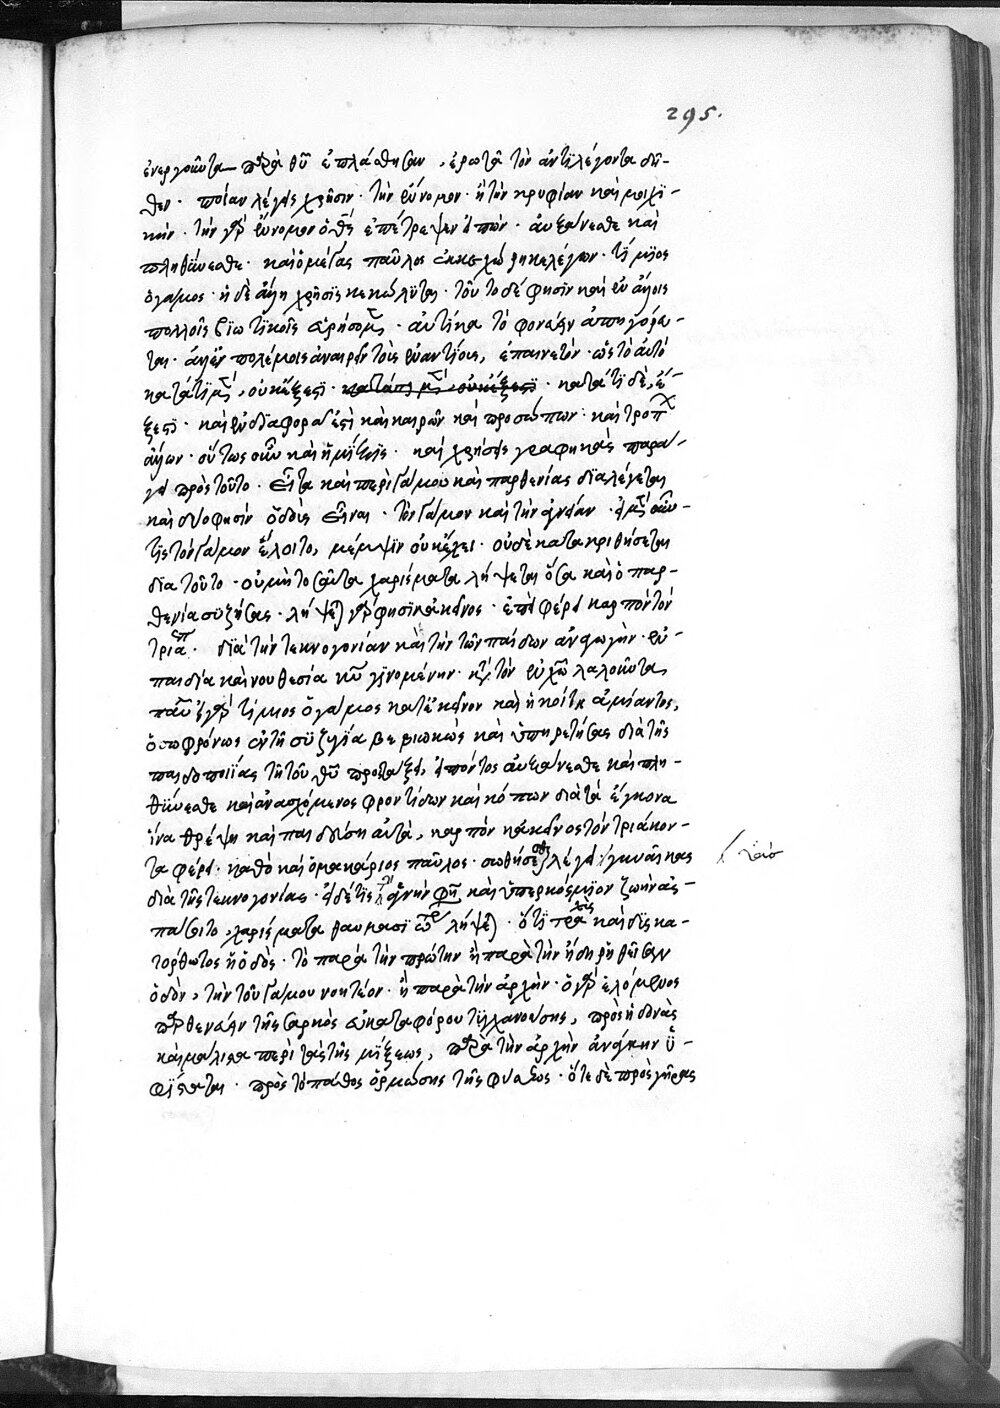 295.
ἐνεργοῦντα παρὰ θῦ ἐπλάσθησαν, ἐρωτᾶ τὸν ἀντιλέγοντα δῆ-
θεν· ποίαν λέγεις χρῆσιν· τὴν ἔννομον· ἢ τὴν κρυφίαν καὶ μοιχι-
κήν· τὴν γὰρ ἔννομον ὁ θς ἐπέτρεψεν εἰπών· αὐξάνεσθε καὶ
πληθύνεσθε· καὶ ὁ μέγας παῦλος λέγων· τίμιος
ὁ γάμος· ἡ δὲ ἄλλη χρῆσις κεκώλυται· τοῦτο δέ φησιν καὶ ἐν ἄλλοις
πολλοῖς βιωτικοῖς εὑρήσομεν· αὐτίκα τὸ φονεύειν ἀπηγόρευ-
ται· ἀλλ' ἐν πολέμοις ἀναιρεῖν τοὺς ἐναντίους, ἐπαινετόν· ὥστε τὸ αὐτὸ
κατά τι μὲν, οὐκ ἔξεστι· κατά τι δὲ, ἔ-
ξεστι· καὶ ἐν διαφορᾶ ἐστὶ καὶ καιρῶν καὶ προσώπων· καὶ τρόπων
ἄλλων· οὕτως οὖν καὶ ἡ μίξις· καὶ χρήσεις γραφικὰς παρά-
γει πρὸς τοῦτο· εἶτα καὶ περὶ γάμου καὶ παρθενίας διαλέγεται
καὶ δύο φησὶν ὁδοὺς εἶναι· τὸν γάμον καὶ τὴν ἁγνείαν· εἰ μὲν οὖν
τὶς τὸν γάμον ἕλοιτο, μέμψιν οὐκ ἔχει· οὐδὲ κατακριθήσεται
διὰ τοῦτο· οὐ μὴ τοσαῦτα χαρίσματα λήψεται ὅσα καὶ ὁ παρ-
θενία συζήσας· λήψεται γάρ φησιν κἀκεῖνος· ἐπεὶ φέρει καρπὸν τὸν
τριακ· διὰ τὴν τεκνογονίαν καὶ τὴν τῶν παίδων ἀναγωγὴν· ἐν
παιδία καὶ νουθεσία κυ γινομένην· κατὰ τὸν ἐν χῶ λαλοῦντα
παῦλον· εἰ γὰρ τίμιος ὁ γάμος κατ' ἐκεῖνον καὶ ἡ κοίτη ἀμίαντος,
ὁ σωφρόνως ἐν τῆ συζυγία βεβιωκὼς καὶ ὑπηρετήσας διὰ τῆς
παιδοποιΐας τῆ τοῦ θῦ προστάξει, εἰπόντος αὐξάνεσθε καὶ πλη-
θύνεσθε καὶ ἀνασχόμενος φροντίδων καὶ κόπων διὰ τὰ ἔγκονα
ἵνα θρέψη καὶ παιδεύση αὐτὰ, καρπὸν κἀκεῖνος τὸν τριάκον-
τα φέρει· καθὸ καὶ ὁ μακάριος παῦλος· σωθήσεσθαι λέγει γυναῖκας
διὰ τῆς τεκνογονίας· εἰ δέ τις τὴν ἁγνὴν φησὶ καὶ ὑπερκόσμιον ζωὴν ἀσ-
πάσοιτο, χαρίσματα θαυμασιώτερα λήψεται· ὅτι τραχεῖα καὶ δυσκα-
τόρθωτος ἡ ὁδός· τὸ παρὰ τὴν πρώτην ἢ παρὰ τὴν ἤδη ῥηθεῖσαν
ὁδὸν, τὴν τοῦ γάμου νοητέον· ἢ παρὰ τὴν ἀρχὴν· ὁ γὰρ ἑλόμενος
παρθενεύειν τῆς σαρκὸς εὐκαταφόρου τυγχανούσης, πρὸς ἡδονὰς
καὶ μάλιστα περὶ τὰς τῆς μίξεως, παρὰ τὴν ἀρχὴν ἀνάγκην ὑ-
φίσταται· πρὸς τὸ πάθος ὁρμώσης τῆς φύσεως· ὅτε δὲ πρὸς γῆρας